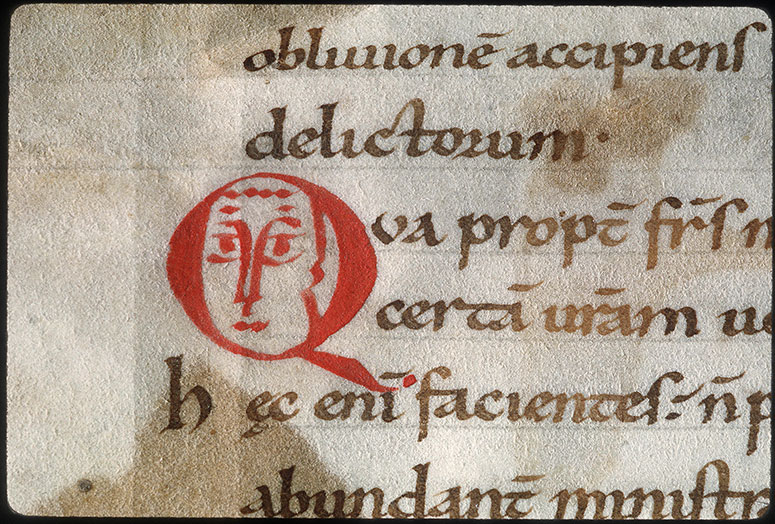 obliuionē accipienſ
delictorum·
Qua propt̄ fr̄ſ
certā ur̄am
hęc enī facienteſ: n̄
abundant̄ miniſtr